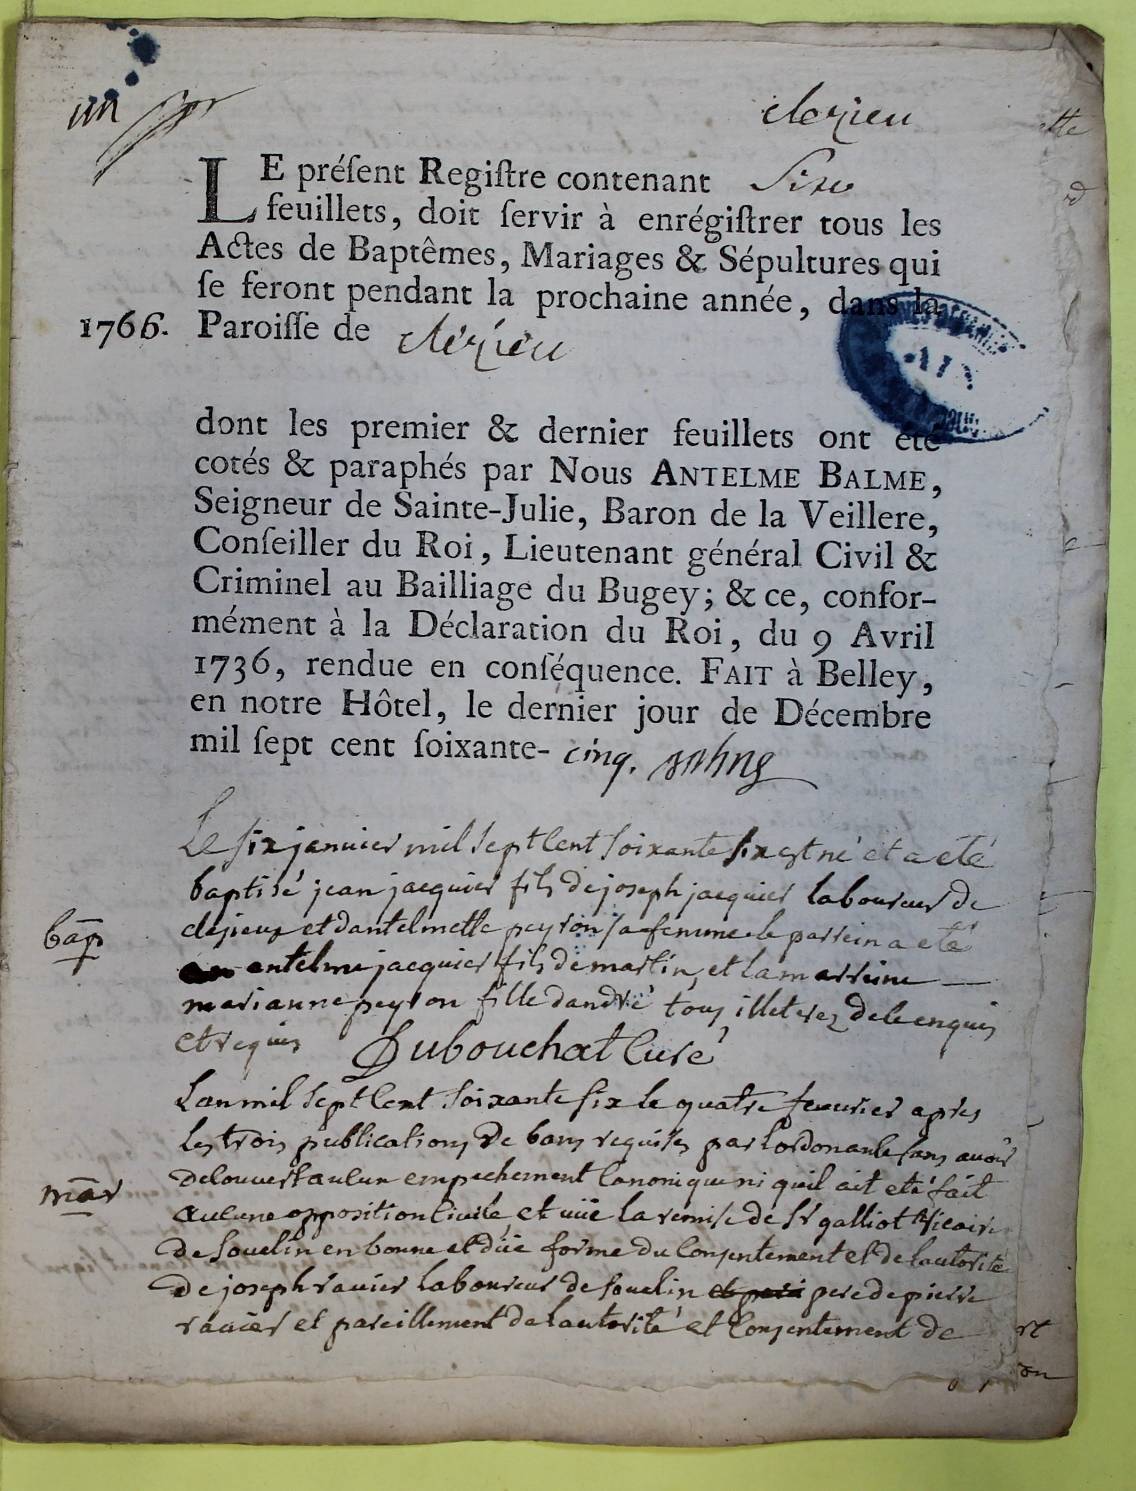 un
clezieu
LE préſent Regiſtre contenant Six
feuillets, doit ſervir à enrégiſtrer tous les
Actes de Baptêmes, Mariages & Sépultures qui
ſe feront pendant la prochaine année, dans la
1766. Paroiſſe de clézieu
dont les premier & dernier feuillets ont été
cotés & paraphés par Nous ANTELME BALME,
Seigneur de Sainte-Julie, Baron de la Veillere,
Conſeiller du Roi, Lieutenant général Civil &
Criminel au Bailliage du Bugey; & ce, confor-
mément à la Déclaration du Roi, du 9 Avril
1736, rendue en conſéquence. FAIT à Belley,
en notre Hôtel, le dernier jour de Décembre
mil ſept cent ſoixante- cinq.
Le six janvier mil sept cent soixante six est né et a eté
baptisé jean jacquier fils de joseph jacquier laboureur de
et dantelmette peyron sa femme le parrein a eté
bap
antelme jacquier fils de martin, et la marreine
marianne peyron fille dandré tous illeterez de ce enquis
et requis Dubouchat Curé
Lan mil sept cent soixante six le quatre feuvrier apres
les trois publications de bans requises par lordonance sans avoir
decouvert aucun empechement canonique ni quil ait eté fait
mar
aucune opposition civile, et vüe la remise de Sr galliot vicaire
de souclin en bonne et düe forme du consentement et de lautorité
de joseph ravier laboureur de souclin pere de pierre
ravier et pareillement de lautorité et consentement de